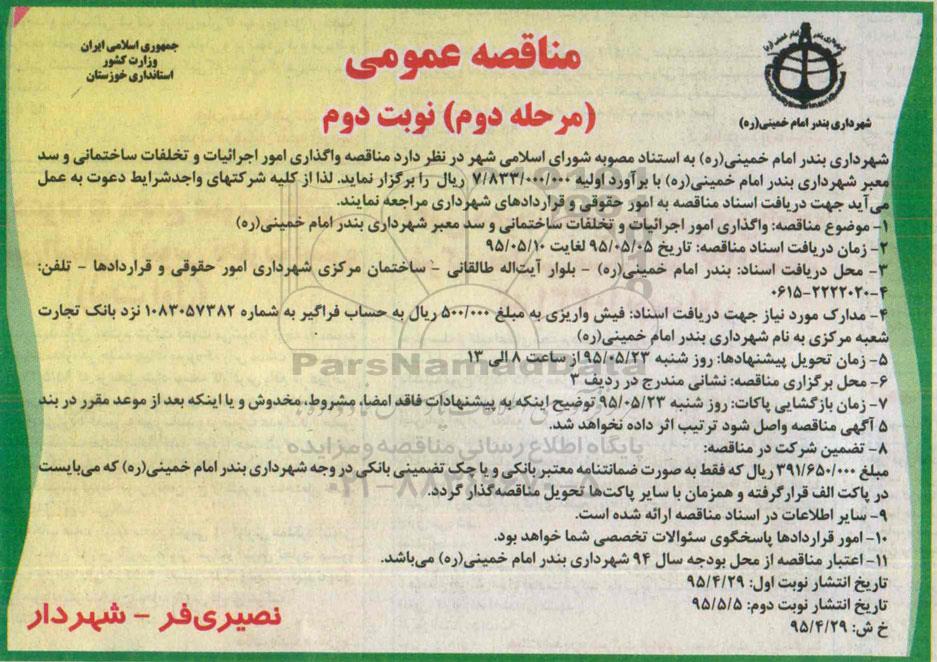 جمهوری اسلامی ایران
وزارت کشور
استانداری خوزستان
مناقصه عمومی
(مرحله دوم) نوبت دوم
شهرداری بندر امام خمینی(ره)
شهرداری بندر امام خمینی(ره) به استناد مصوبه شورای اسلامی شهر در نظر دارد مناقصه واگذاری امور اجرائیات و تخلفات ساختمانی و سد
معبر شهرداری بندر امام خمینی(ره) با برآورد اولیه ۷/۸۳۳/۰۰۰/۰۰۰ ریال را برگزار نماید. لذا از کلیه شرکتهای واجدشرایط دعوت به عمل
می‌آید جهت دریافت اسناد مناقصه به امور حقوقی و قراردادهای شهرداری مراجعه نمایند.
۱- موضوع مناقصه: واگذاری امور اجرائیات و تخلفات ساختمانی و سد معبر شهرداری بندر امام خمینی(ره)
۲- زمان دریافت اسناد مناقصه: تاریخ ۹۵/۰۵/۰۵ لغایت ۹۵/۰۵/۱۰
۳- محل دریافت اسناد: بندر امام خمینی(ره) - بلوار آیت‌اله طالقانی - ساختمان مرکزی شهرداری امور حقوقی و قراردادها - تلفن:
۰۶۱۵-۲۲۲۲۰۲۰-۴
۴- مدارک مورد نیاز جهت دریافت اسناد: فیش واریزی به مبلغ ۵۰۰/۰۰۰ ریال به حساب فراگیر به شماره ۱۰۸۳۰۵۷۳۸۲ نزد بانک تجارت
شعبه مرکزی به نام شهرداری بندر امام خمینی(ره)
۵- زمان تحویل پیشنهادها: روز شنبه ۹۵/۰۵/۲۳ از ساعت ۸ الی ۱۳
۶- محل برگزاری مناقصه: نشانی مندرج در ردیف ۳
۷- زمان بازگشایی پاکات: روز شنبه ۹۵/۰۵/۲۳ توضیح اینکه به پیشنهادات فاقد امضا، مشروط، مخدوش و یا اینکه بعد از موعد مقرر در بند
۵ آگهی مناقصه واصل شود ترتیب اثر داده نخواهد شد.
۸- تضمین شرکت در مناقصه:
مبلغ ۳۹۱/۶۵۰/۰۰۰ ریال که فقط به صورت ضمانتنامه معتبر بانکی و یا چک تضمینی بانکی در وجه شهرداری بندر امام خمینی(ره) که می‌بایست
در پاکت الف قرار گرفته و همزمان با سایر پاکت‌ها تحویل مناقصه‌گذار گردد.
۹- سایر اطلاعات در اسناد مناقصه ارائه شده است.
۱۰- امور قراردادها پاسخگوی سئوالات تخصصی شما خواهد بود.
۱۱- اعتبار مناقصه از محل بودجه سال ۹۴ شهرداری بندر امام خمینی(ره) می‌باشد.
تاریخ انتشار نوبت اول: ۹۵/۴/۲۹
تاریخ انتشار نوبت دوم: ۹۵/۵/۵
خ ش: ۹۵/۴/۲۹
نصیری‌فر - شهردار
ParsNamadData
پایگاه اطلاع رسانی مناقصه و مزایده